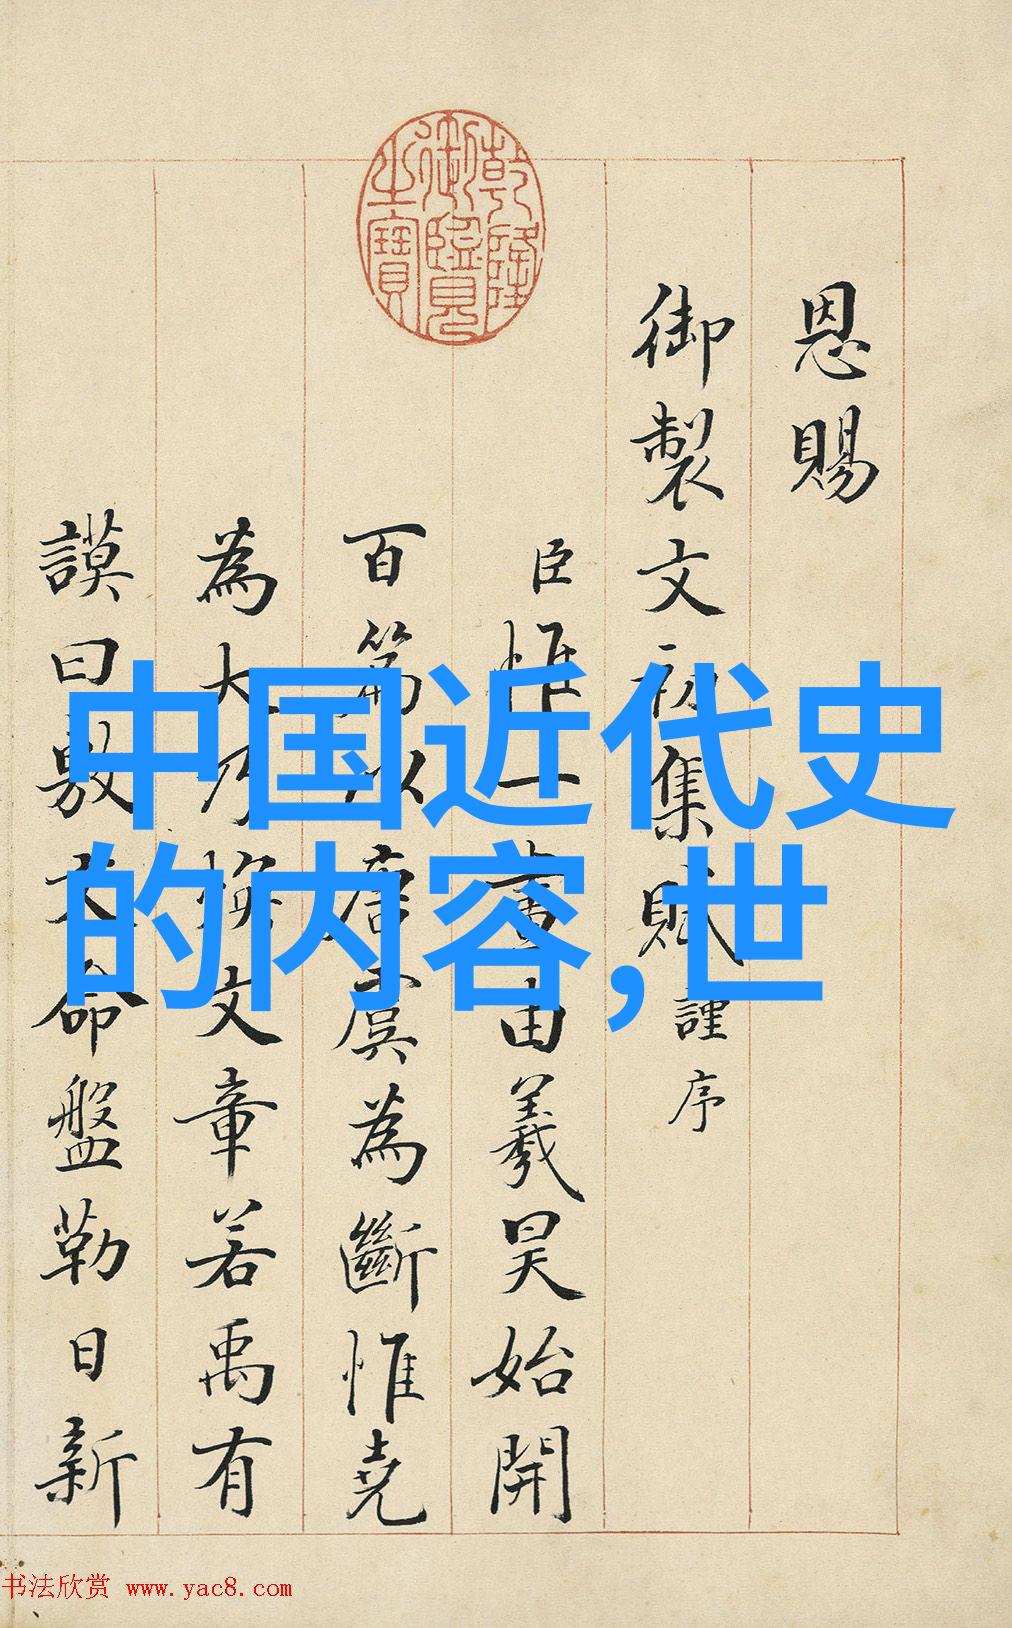 乾隆
御覽
之寶
恩賜
御製文初集賦謹序
臣惟一畫由羲昊始開
百篇以唐虞為斷惟堯
為大乃煥文章若禹有
謨曰敷文命盤勒日新
中国近代史
的内容,世
书法欣赏 www.yac8.com